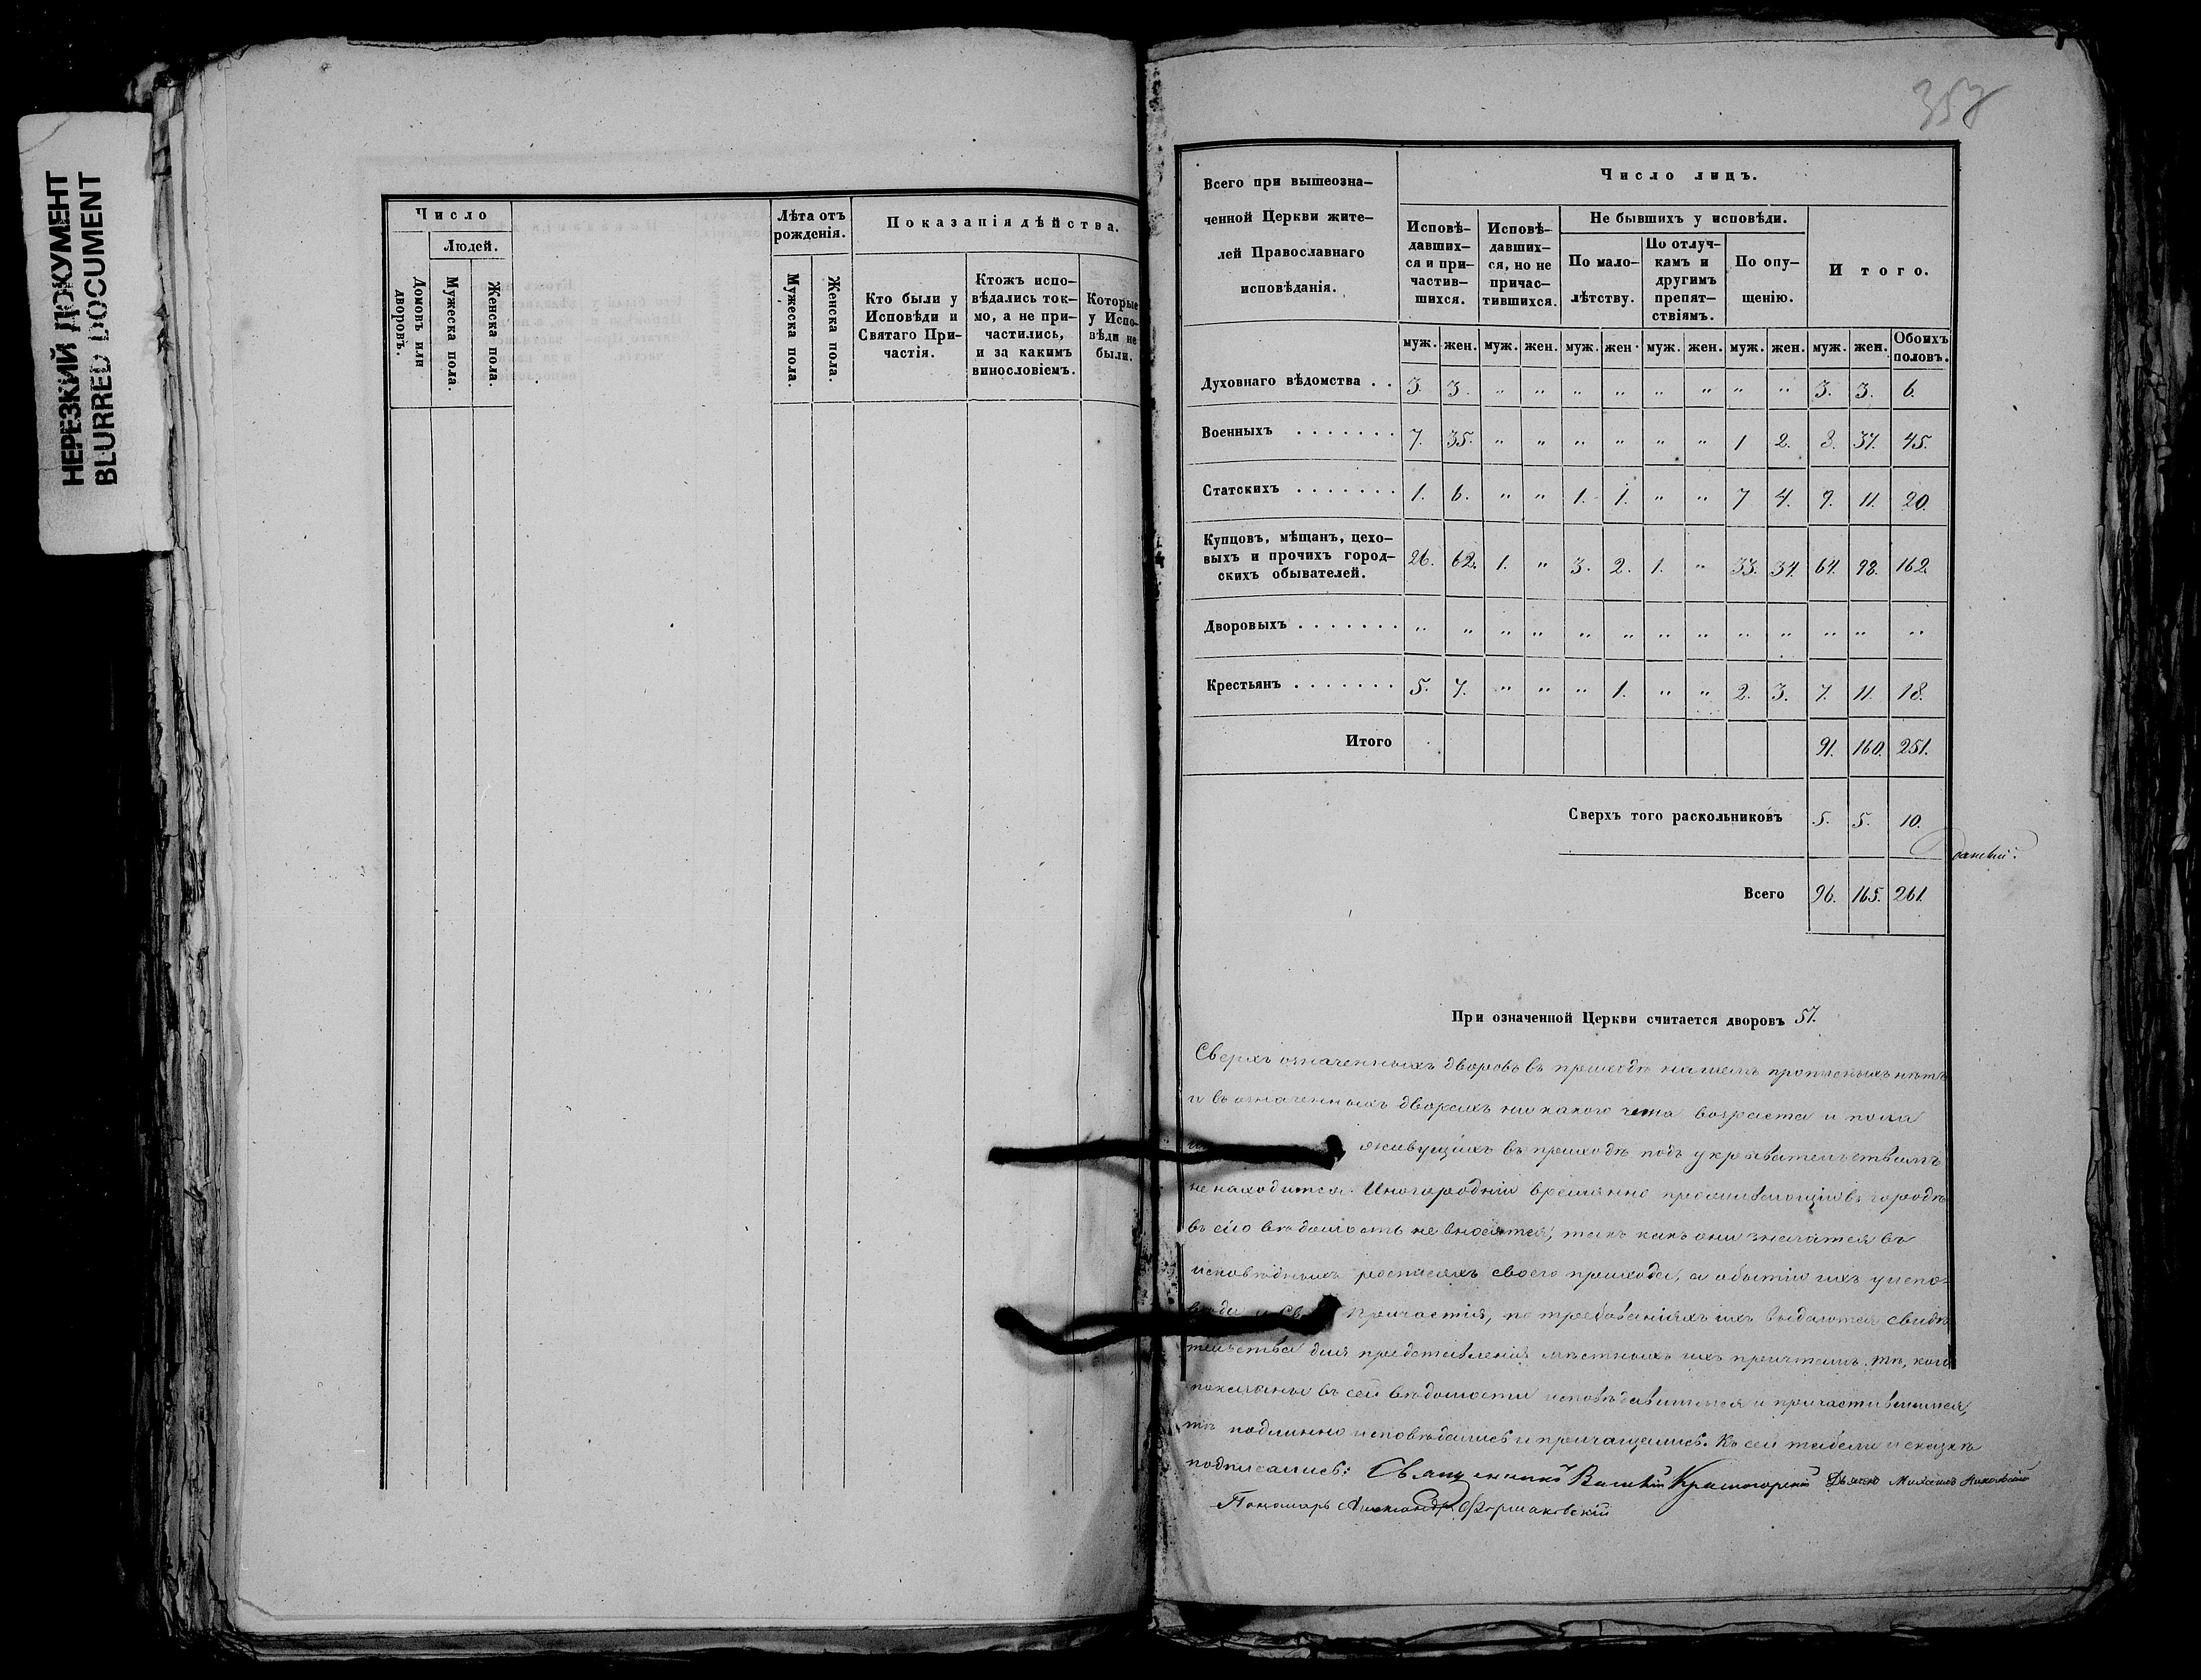 НЕРЕЗКИЙ ДОКУМЕНТ
BLURRED DOCUMENT
Число
Людей.
Домовъ или дворовъ.
Мужеска пола.
Женска пола.
Лѣта отъ рожденія.
Мужеска пола.
Женска пола.
Показанія дѣйства.
Кто были у Исповѣди и Святаго Причастія.
Ктожъ исповѣдались токмо, а не причастились, и за какимъ винословіемъ.
Которые у Исповѣди не были.
357
Всего при вышеозна-
ченной Церкви жите-
лей Православнаго
исповѣданія.
Число лицъ.
Исповѣ-давших-ся и при-частив-шихся.
Исповѣ-давших-ся, но не причас-тившихся.
Не бывшихъ у исповѣди.
По мало-лѣтству.
По отлуч-камъ и другимъ препят-ствіямъ.
По опу-щенію.
Итого.
муж. жен. муж. жен. муж. жен. муж. жен. муж. жен. муж. жен. Обоихъ половъ.
Духовнаго вѣдомства . . 3. 3. " " " " " " " " 3. 3. 6.
Военныхъ . . . . . . . 7. 35. " " " " " " 1 2. 8. 37. 45.
Статскихъ . . . . . . . 1. 6. " " 1. 1. " " 7 4. 9. 11. 20.
Купцовъ, мѣщанъ, цехо-
выхъ и прочихъ город-
скихъ обывателей. 26. 62. 1. " 3. 2. 1. " 33. 34. 64. 98. 162.
Дворовыхъ . . . . . . . " " " " " " " " " " " " "
Крестьянъ . . . . . . . 5. 7. " " " 1. " " 2. 3. 7. 11. 18.
Итого 91. 160. 251.
Сверхъ того раскольниковъ 5. 5. 10.
Всего 96. 165. 261.
При означенной Церкви считается дворовъ 57.
Сверхъ означенныхъ дворовъ въ приходѣ нашемъ прописныхъ нѣтъ
и въ означенныхъ дворахъ никакого чина возраста и пола
живущихъ въ приходѣ подъ укрывательствомъ
не находится. Иногородніи временно проживающіе въ городѣ
въ сію вѣдомость не вносятся, такъ какъ они значатся въ
исповѣдныхъ росписяхъ своего прихода, а о бытіи ихъ у испо-
вѣди и Св. причастія, по требованіямъ ихъ выдаются свидѣ
тельства для представленія мѣстнымъ ихъ причтамъ. Тѣ, кои
показаны въ сей вѣдомости исповѣдавшимися и причастившимися,
тѣ подлинно исповѣдались и причащались. Къ сей табели и сказкѣ
подписались: Священникъ Василій Красногорскій Дьячекъ Михаилъ Никольскій
Пономарь Александръ Формаковскій